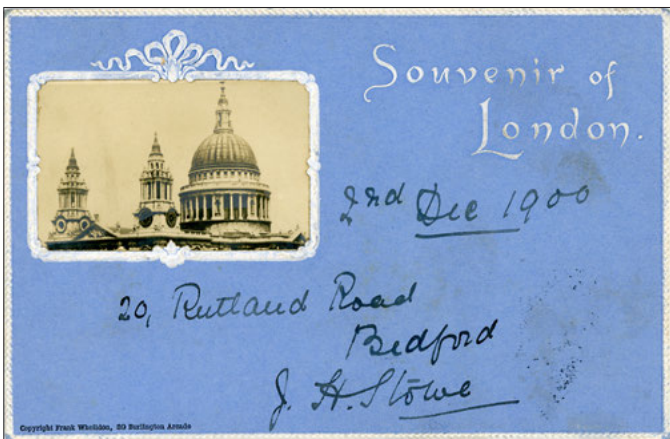 Souvenir of
London.
2nd Dec 1900
20, Rutland Road
Bedford
J. H. Stowe
Copyright Frank Wheildon, 20 Burlington Arcade